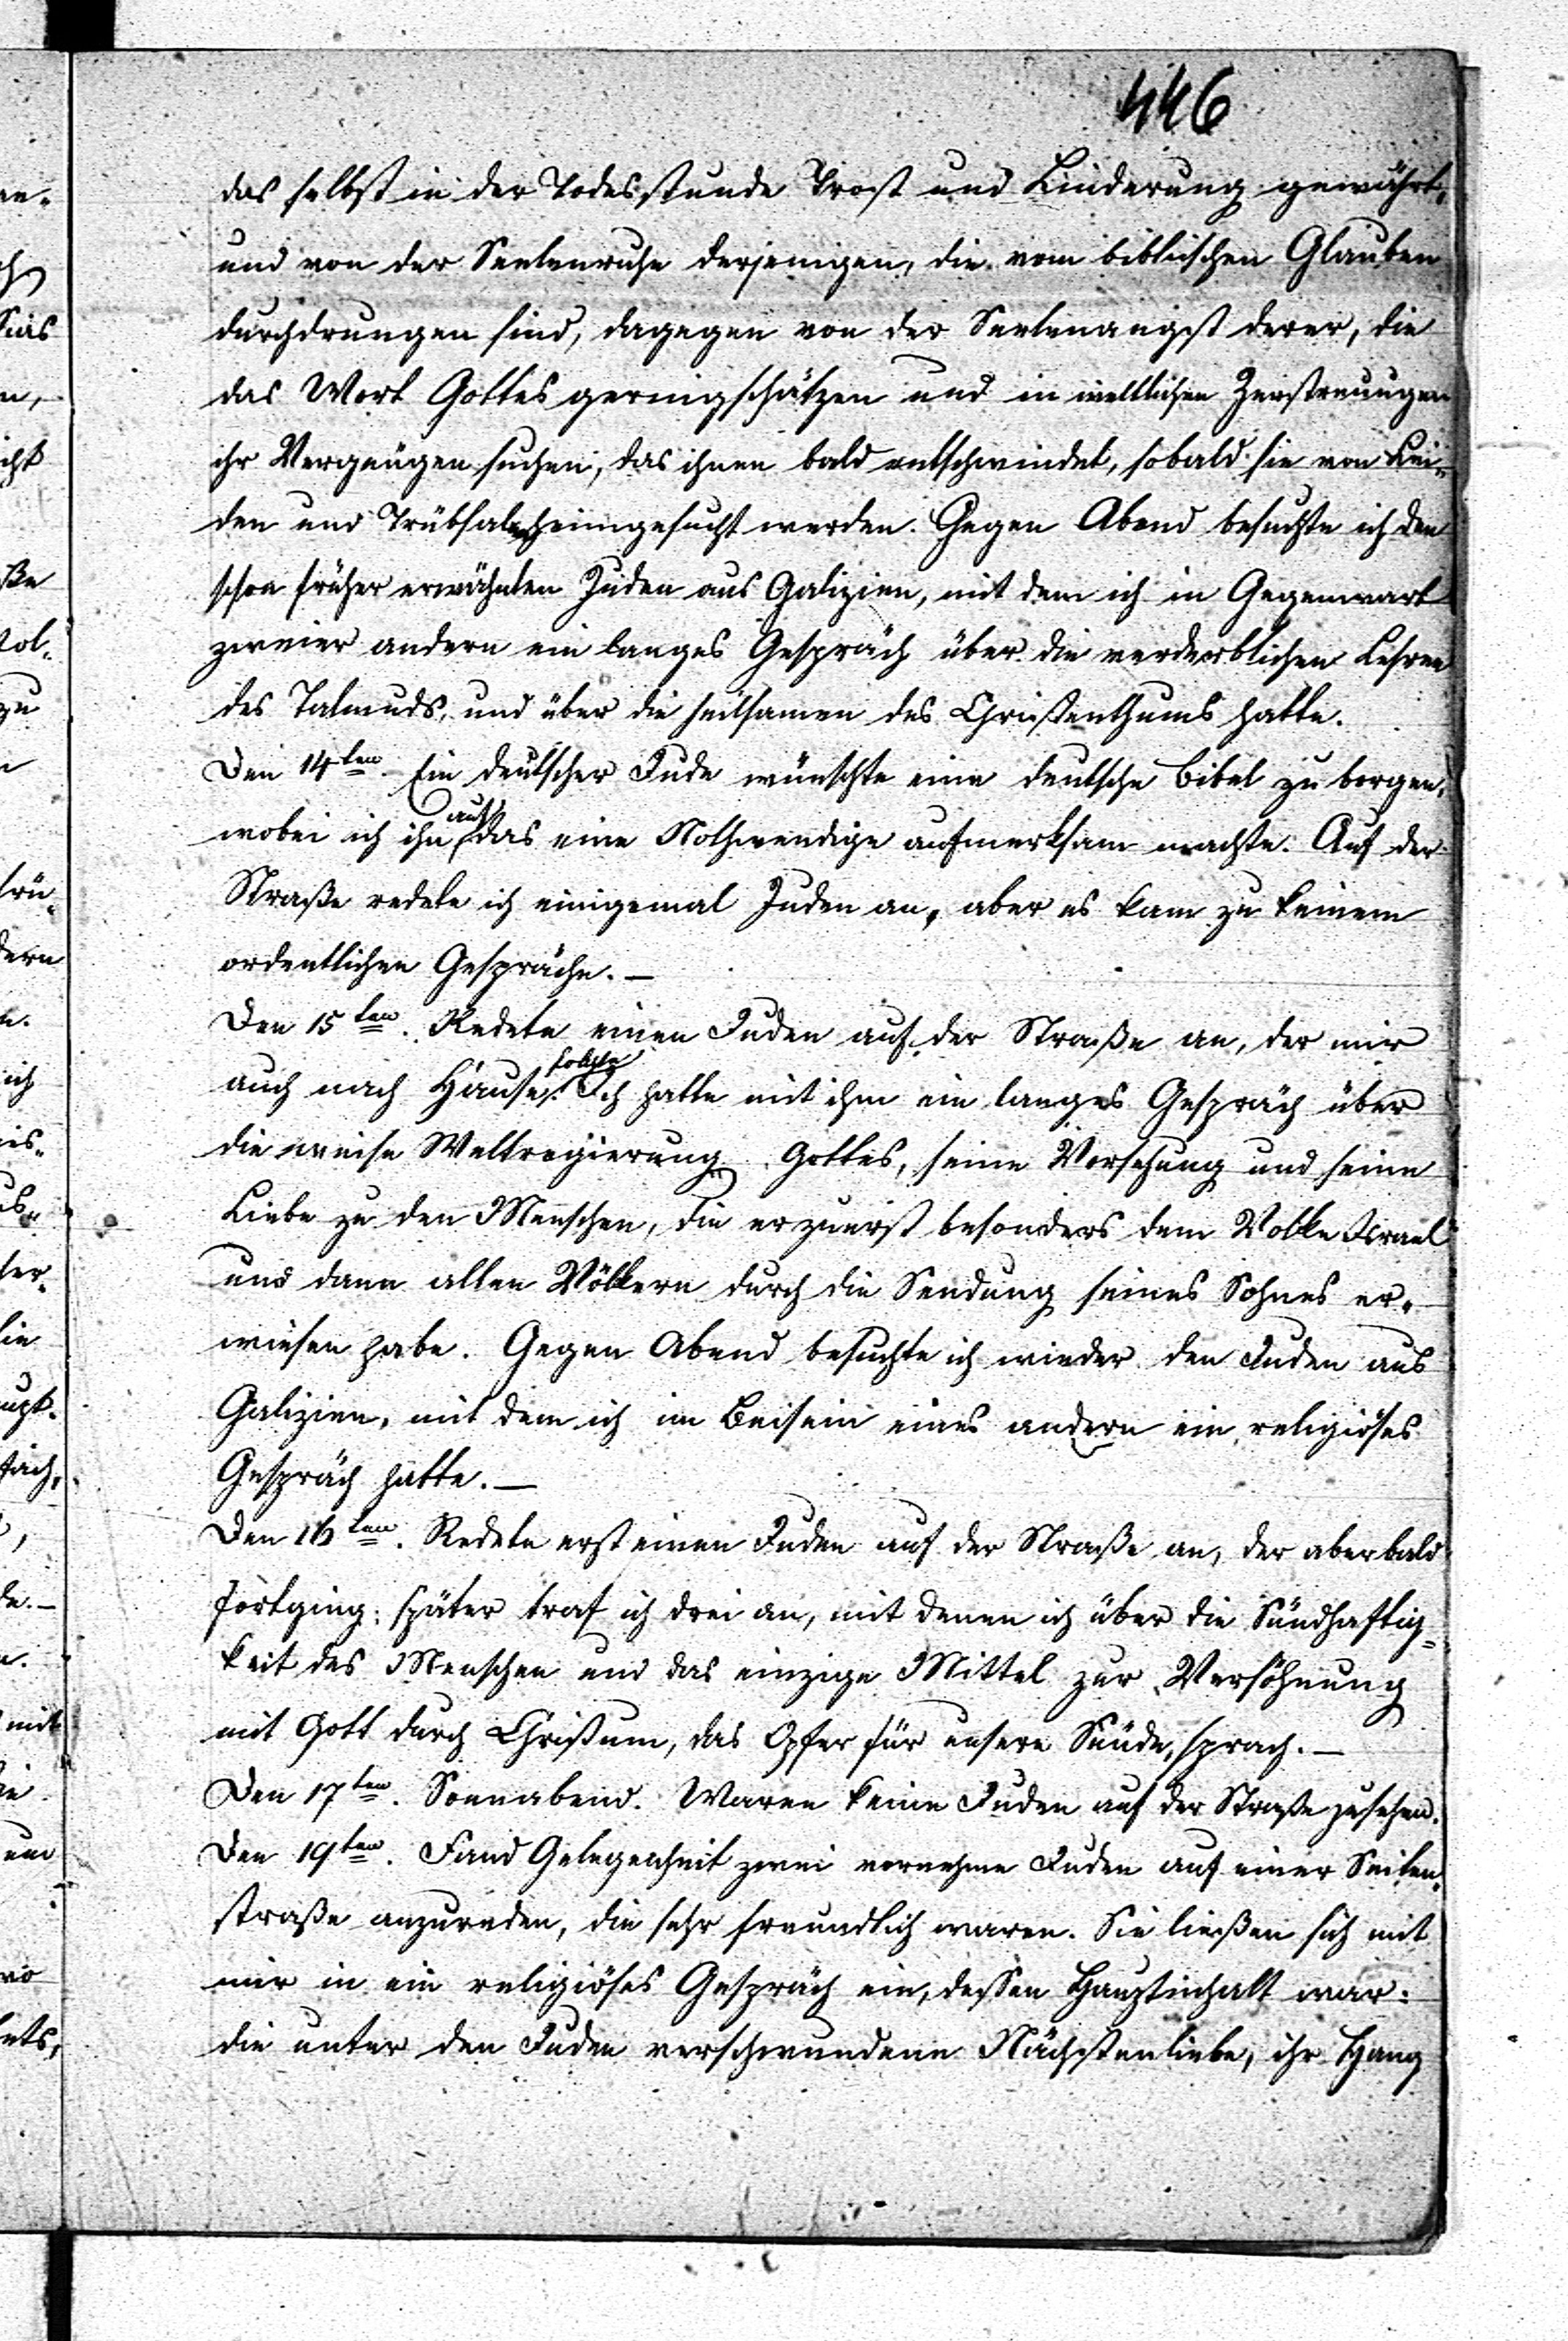 446
das selbst in der Todesstunde Trost und Linderung gewährt,
und von der Seelenruhe derjenigen, die vom biblischen Glauben
durchdrungen sind, dagegen von der Seelenangst derer, die
das Wort Gottes geringschätzen und in weltlichen Zerstreuungen
ihr Vergnügen suchen, das ihnen bald entschwindet, sobald sie von Lei-
den und Trübsalen heimgesucht werden. Gegen Abend besuchte ich den
schon früher erwähnten Juden aus Galizien, mit dem ich in Gegenwart
zweier andern ein langes Gespräch über die verderblichen Lehren
des Talmuds, und über die heilsamen des Christenthums hatte.
Den 14ten. Ein deutscher Jude wünschte eine deutsche Bibel zu borgen,
wobei ich ihn auf das eine Nothwendige aufmerksam machte. Auf der
Straße redete ich einigemal Juden an, aber es kam zu keinem
ordentlichen Gespräche. —
Den 15ten. Redete einen Juden auf der Straße an, der mir
auch nach Hause folgte. Ich hatte mit ihm ein langes Gespräch über
die weise Weltregierung Gottes, seine Vorsehung und seine
Liebe zu den Menschen, die er zuerst besonders dem Volke Israel
und dann allen Völkern durch die Sendung seines Sohnes er-
wiesen habe. Gegen Abend besuchte ich wieder den Juden aus
Galizien, mit dem ich im Beisein eines andern ein religiöses
Gespräch hatte. —
Den 16ten. Redete erst einen Juden auf der Straße an, der aber bald
fortging; später traf ich drei an, mit denen ich über die Sündhaftig-
keit des Menschen und das einzige Mittel zur Versöhnung
mit Gott durch Christum, das Opfer für unsere Sünde, sprach. —
Den 17ten. Sonnabend. Waren keine Juden auf der Straße zu sehen.
Den 19ten. Fand Gelegenheit zwei vornehme Juden auf einer Seiten-
straße anzureden, die sehr freundlich waren. Sie ließen sich mit
mir in ein religiöses Gespräch ein, dessen Hauptinhalt war:
die unter den Juden verschwundene Nächstenliebe, ihr Hang